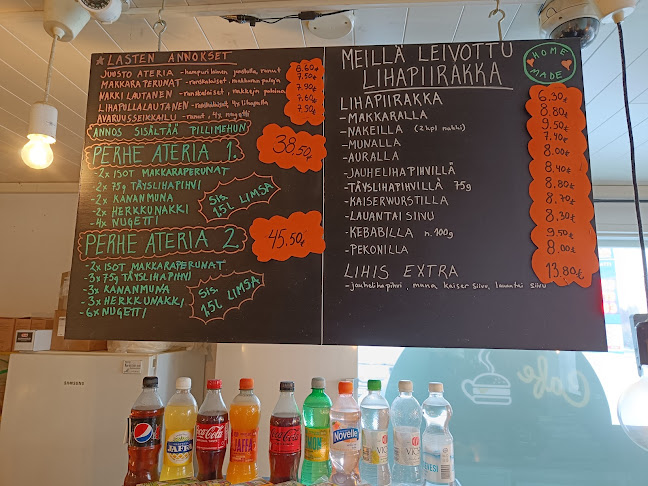 LASTEN ANNOKSET
JUUSTO ATERIA - hampurilainen, pastilla, ranut 6.60€
MAKKARAPERUNAT - ranskalaiset, makkara paloja 7.50€
NAKKI LAUTANEN - ranskalaiset, nakkeja paloina 7.90€
LIHAPULLALAUTANEN - ranskalaiset, 4x lihapulla 7.60€
AVARUUSSEIKKAILU - ranut, 4x nugetti 7.50€
ANNOS SISÄLTÄÄ PILLIMEHUN
PERHE ATERIA 1. 38.50€
- 2x ISOT MAKKARAPERUNAT
- 2x 75g TÄYSLIHAPIHVI
- 2x KANANMUNA
- 2x HERKKUNAKKI
- 4x NUGETTI
SIS. 1,5L LIMSA
PERHE ATERIA 2 45.50€
- 2x ISOT MAKKARAPERUNAT
- 3x 75g TÄYSLIHAPIHVI
- 3x KANANMUNA
- 3x HERKKUNAKKI
- 6x NUGETTI
SIS. 1,5L LIMSA
MEILLÄ LEIVOTTU
LIHAPIIRAKKA
HOME MADE
LIHAPIIRAKKA 6.30€
- MAKKARALLA 8.80€
- NAKEILLA (2 kpl nakki) 9.50€
- MUNALLA 7.40€
- AURALLA 8.00€
- JAUHELIHAPIHVILLÄ 8.40€
- TÄYSLIHAPIHVILLÄ 75g 8.80€
- KAISERWURSTILLA 8.70€
- LAUANTAI SIIVU 8.30€
- KEBABILLA n. 100g 9.50€
- PEKONILLA 8.00€
LIHIS EXTRA 13.80€
- jauhelihapihvi, muna, kaiser siivu, lauantai siivu
SAMSUNG
Cafe
pepsi
JAFFA
Coca-Cola
JAFFA
Coca-Cola
Novelle